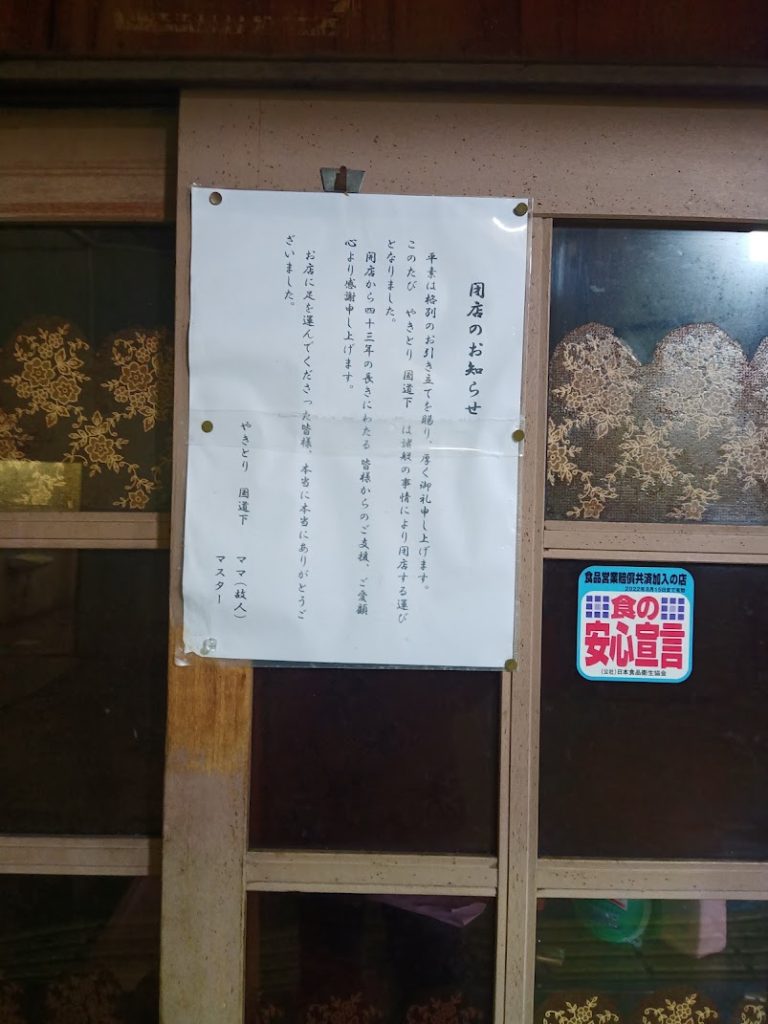 閉店のお知らせ
平素は格別のお引き立てを賜り、厚く御礼申し上げます。
このたび やきとり 国道下 は諸般の事情により閉店する運び
となりました。
開店から四十三年の長きにわたる 皆様からのご支援、ご愛顧
心より感謝申し上げます。
お店に足を運んでくださった皆様、本当に本当にありがとうご
ざいました。
やきとり 国道下 ママ(故人)
マスター
食品営業賠償共済加入の店
2022年8月15日まで有効
食の
安心宣言
(公社)日本食品衛生協会